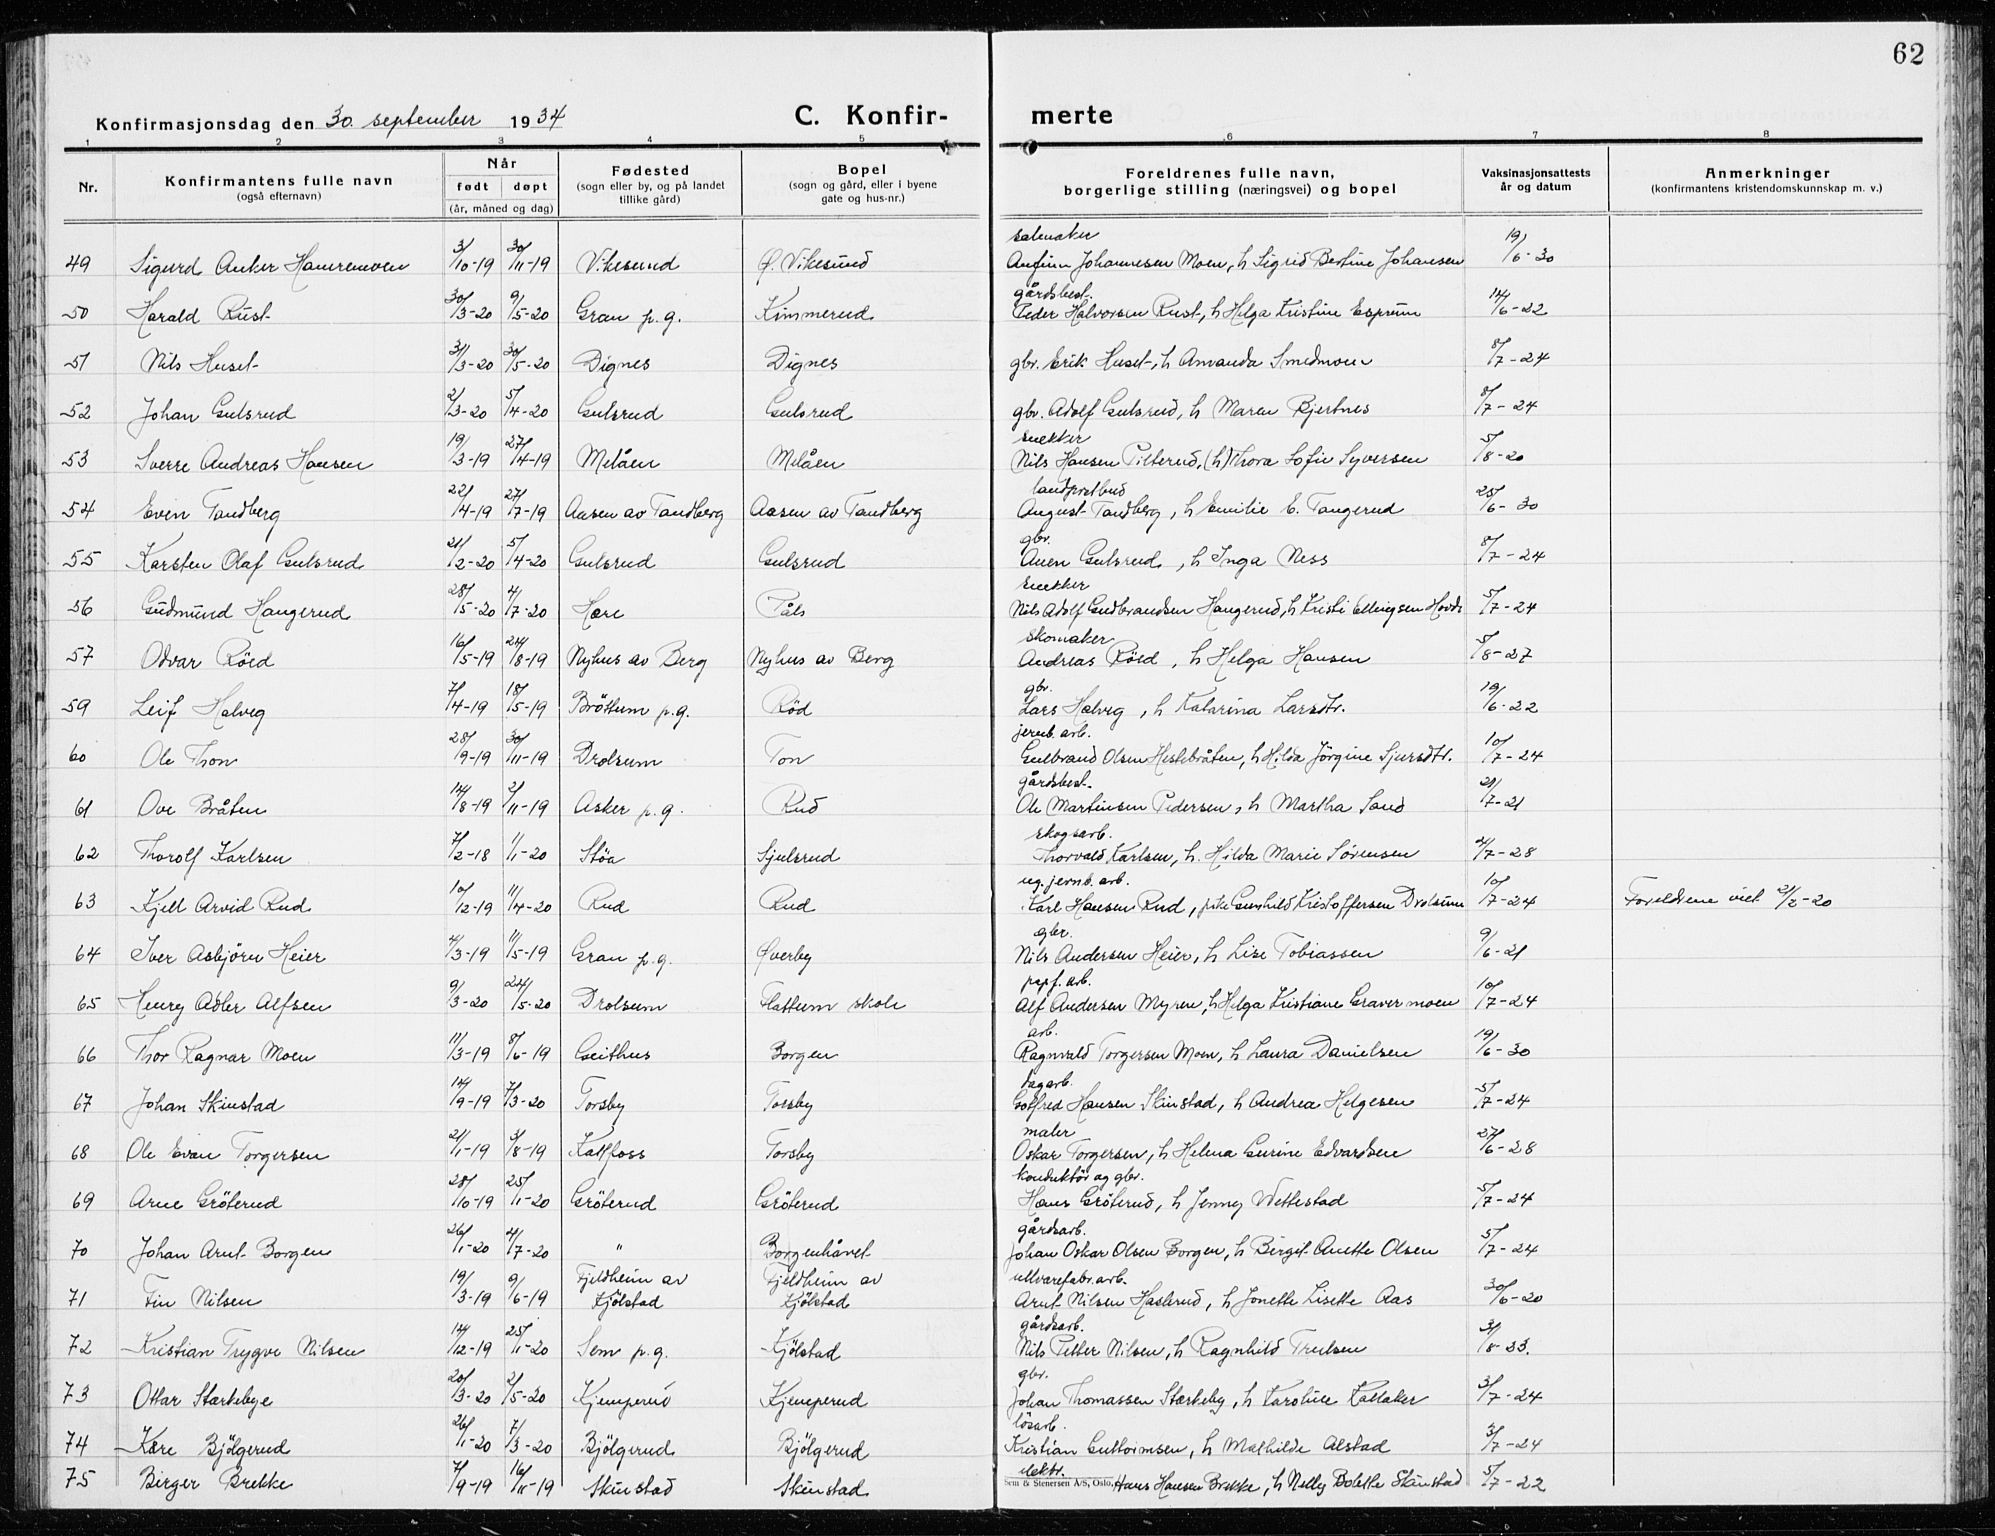 62
Konfirmasjonsdag den 30. september 1934 C. Konfir- merte
1 2 3 4 5 6 7 8
Nr. Konfirmantens fulle navn (også efternavn) Når født døpt (år, måned og dag) Fødested (sogn eller by, og på landet tillike gård) Bopel (sogn og gård, eller i byene gate og hus-nr.) Foreldrenes fulle navn, borgerlige stilling (næringsvei) og bopel Vaksinasjonsattests år og datum Anmerkninger (konfirmantens kristendomskunnskap m. v.)
salmaker
49 Sigurd Anker Hamremoen 3/10-19 30/11-19 Vikesund Ø. Vikesund Anfinn Johannesen Moen, h Sigrid Bertine Johansen 19/6-30
gårdsbest.
50 Harald Rust 30/3-20 9/5-20 Gran p.g. Kimmerud Peder Halvorsen Rust, h Helga Kristine Esprum 14/6-22
51 Nils Huset 31/3-20 30/5-20 Dignes Dignes gbr. Erik Huset, h Amanda Smedmoen 8/7-24
52 Johan Gulsrud 2/3-20 5/4-20 Gulsrud Gulsrud gbr. Adolf Gulsrud, h Maren Bjertnes 8/7-24
snekker
53 Sverre Andreas Hansen 19/3-19 27/4-19 Melåen Melåen Nils Hansen Pilterud, (h) Thora Sofie Syversen 5/8-20
landpostbud
54 Even Tandberg 22/4-19 27/7-19 Aasen av Tandberg Aasen av Tandberg August Tandberg, h Emilie E. Tangerud 25/6-30
gbr.
55 Karsten Olaf Gulsrud 21/2-20 5/4-20 Gulsrud Gulsrud Auen Gulsrud, h Inga Ness 8/7-24
snekker
56 Gudmund Haugerud 28/5-20 4/7-20 Hære Påls Nils Adolf Gudbrandsen Haugerud, h Kristi Ellingsen Hovde 5/7-24
skomaker
57 Odvar Röed 16/5-19 24/8-19 Nyhus av Berg Nyhus av Berg Andreas Röed, h Helga Hansen 5/8-27
gbr.
59 Leif Halveg 7/4-19 18/5-19 Bröttum p.g. Röd Lars Halveg, h Katarina Larsdtr. 19/6-22
jernb. arb.
60 Ole Thon 28/9-19 30/11-19 Drolsum Ton Gulbrand Olsen Hestebråten, h Hilda Jörgine Sjursdtr. 10/7-24
gårdsbest.
61 Ove Bråten 14/8-19 2/11-19 Asker p.g. Rud Ole Martinsen Pedersen, h Martha Sand 21/7-21
skogsarb.
62 Thorolf Karlsen 7/2-18 1/1-20 Stöa Sjulsrud Thorvald Karlsen, h. Hilda Marie Sörensen 4/7-28
ug. jernb. arb.
63 Kjell Arvid Rud 10/12-19 11/4-20 Rud Rud Karl Hansen Rud, pike Gunhild Kristoffersen Drolsum 10/7-24 Foreldrene viet 21/2-20
gbr.
64 Iver Asbjörn Heier 4/3-19 11/5-19 Gran p.g. Øverby Nils Andersen Heier, h Lise Tobiassen 9/6-21
papf. arb.
65 Henry Adler Alfsen 9/3-20 24/5-20 Drolsum Flattum skole Alf Andersen Myren, h Helga Kristiane Gravermoen 10/7-24
arb.
66 Thor Ragnar Moen 11/3-19 8/6-19 Geithus Borgen Ragnvald Torgersen Moen, h Laura Danielsen 19/6-30
dagarb.
67 Johan Skinstad 14/9-19 7/3-20 Torsby Torsby Golfred Hansen Skinstad, h Andrea Helgesen 5/7-24
maler
68 Ole Evan Torgersen 21/1-19 3/8-19 Katfoss Torsby Oskar Torgersen, h Helena Gurine Edvardsen 27/6-28
konduktör og gbr.
69 Arne Gröterud 28/10-19 25/1-20 Gröterud Gröterud Hans Gröterud, h Jenny Wettestad 5/7-24
gårdsarb.
70 Johan Arnt Borgen 26/1-20 4/7-20 " Borgenhåvet Johan Oskar Olsen Borgen, h Birgit Anette Olsen 5/7-24
ullvarefabr. arb.
71 Fin Nilsen 19/3-19 9/6-19 Fjeldheim av Kjölstad Fjeldheim av Kjölstad Arnt Nilsen Haslerud, h Jonette Lisette Aas 30/6-20
gårdsarb.
72 Kristian Trygve Nilsen 14/12-19 25/1-20 Sem p.g. Kjölstad Nils Petter Nilsen, h Ragnhild Trulsen 31/8-33.
gbr.
73 Ottar Stærkebye 20/3-20 2/5-20 Kjemperud Kjemperud Johan Thomassen Stærkeby, h Karoline Kallaker 3/7-24
lösarb.
74 Kåre Bjölgerud 26/1-20 7/3-20 Bjölgerud Bjölgerud Kristian Guttormsen, h Mathilde Alstad 3/7-24
elektr.
75 Birger Brekke 7/9-19 16/11-19 Skinstad Skinstad Hans Hansen Brekke, h Nelly Bolette Skinstad 5/7-22
Sem & Stenersen A/S, Oslo.